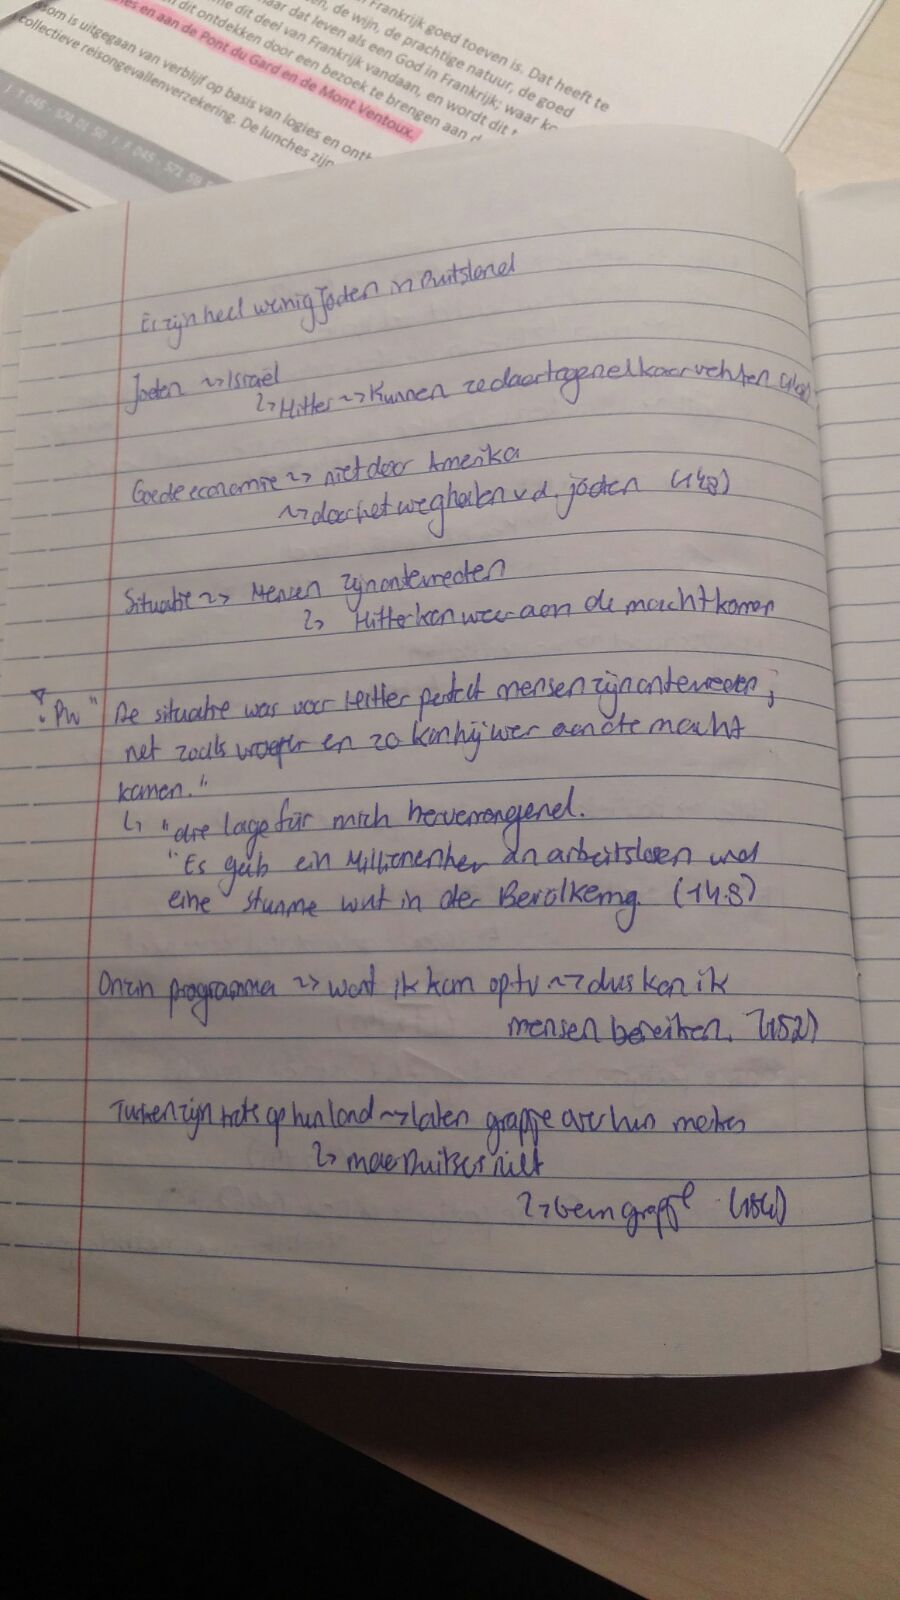 Frankrijk goed toeven is. Dat heeft te
en, de wijn, de prachtige natuur, de goed
me dit deel van Frankrijk vandaan, en wordt dit
aar dat leven als een God in Frankrijk; waar
dit ontdekken door een bezoek te brengen aan d
es en aan de Pont du Gard en de Mont Ventoux.
som is uitgegaan van verblijf op basis van logies en ont
collectieve reisongevallenverzekering. De lunches zijn
I T 045 - 574 01 50 I F 045 - 571 59
Er zijn heel weinig Joden in Duitsland
Joden ~> Israël
↳ Hitler ~> Kunnen ze daar tegen elkaar vechten
Goede economie ~> niet door Amerika
~> door het weghalen v.d. joden (148)
Situatie ~> Mensen zijn ontevreden
↳ Hitler kan weer aan de macht komen
! PW " De situatie was voor Hitler perfect mensen zijn ontevreden,
net zoals vroeger en zo kan hij weer aan de macht
komen."
↳ "die lage für mich hervorrangend.
"Es gab ein Millionenher an arbeitslosen und
eine stumme wut in der Bevölkerng. (148)
Onzin programma ~> want ik kom op tv ~> dus kan ik
mensen bereiken. (152)
Turken zijn trots op hun land ~> laten grapje over hun maken
↳ maar Duitsers niet
↳ geen grapje (154)